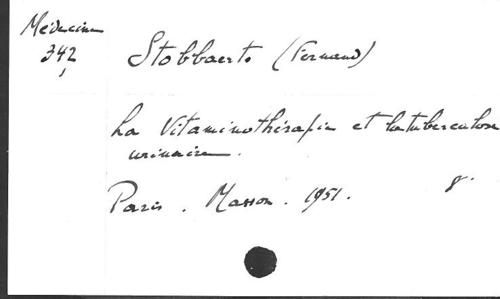 Médecine
342
Stobbaerts (Fernand)
La Vitaminothérapie et la tuberculose
urinaire.
Paris. Masson. 1951. 8°.